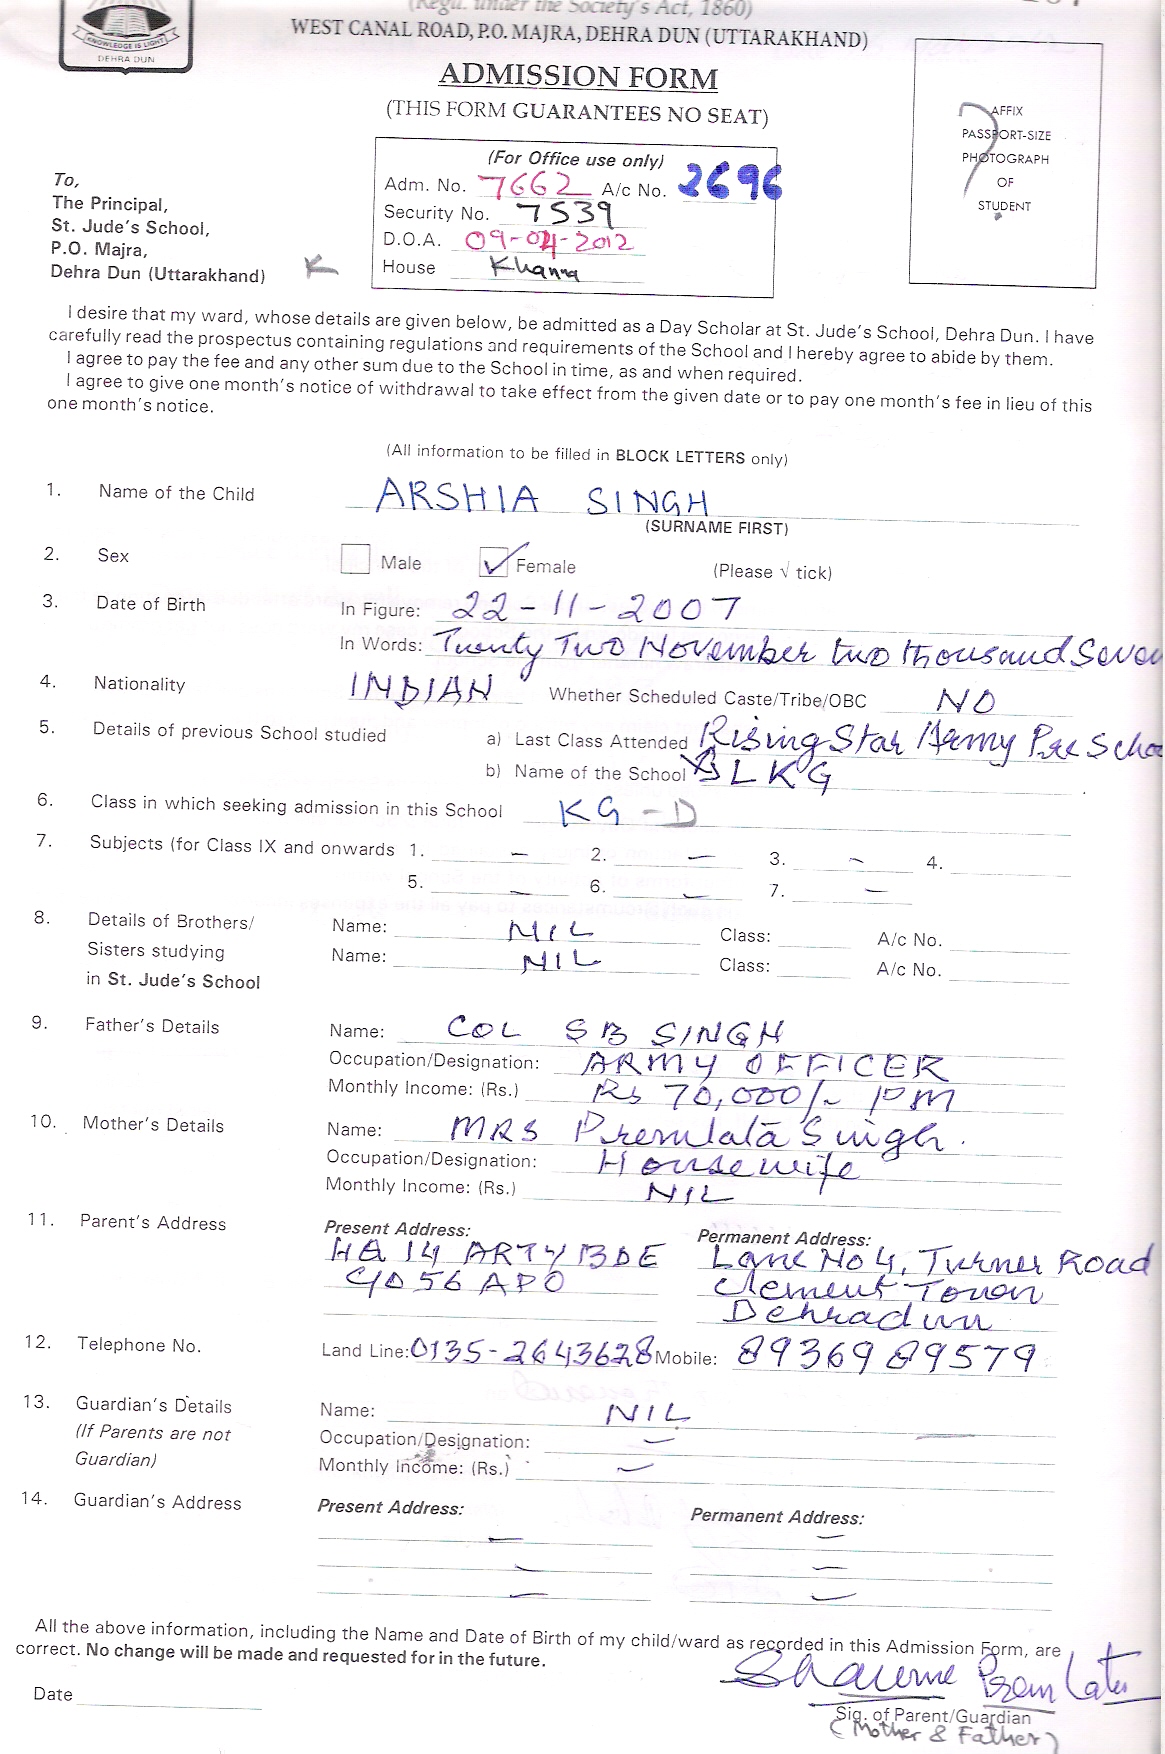 (Regd. under the Society's Act, 1860)
WEST CANAL ROAD, P.O. MAJRA, DEHRA DUN (UTTARAKHAND)
KNOWLEDGE IS LIGHT
DEHRA DUN
ADMISSION FORM
(THIS FORM GUARANTEES NO SEAT)
AFFIX
PASSPORT-SIZE
PHOTOGRAPH
OF
STUDENT
(For Office use only)
Adm. No. 7662 A/c No. 2696
Security No. 7539
D.O.A. 09-04-2012
House Khanna
To,
The Principal,
St. Jude's School,
P.O. Majra,
Dehra Dun (Uttarakhand)
K
I desire that my ward, whose details are given below, be admitted as a Day Scholar at St. Jude's School, Dehra Dun. I have
carefully read the prospectus containing regulations and requirements of the School and I hereby agree to abide by them.
I agree to pay the fee and any other sum due to the School in time, as and when required.
I agree to give one month's notice of withdrawal to take effect from the given date or to pay one month's fee in lieu of this
one month's notice.
(All information to be filled in BLOCK LETTERS only)
1. Name of the Child ARSHIA SINGH
(SURNAME FIRST)
2. Sex Male ✓ Female (Please √ tick)
3. Date of Birth In Figure: 22-11-2007
In Words: Twenty Two November two thousand Seven
4. Nationality INDIAN Whether Scheduled Caste/Tribe/OBC NO
5. Details of previous School studied a) Last Class Attended Rising Star Army Pre Scho
b) Name of the School LKG
6. Class in which seeking admission in this School KG - D
7. Subjects (for Class IX and onwards 1. - 2. - 3. - 4.
5. - 6. - 7. -
8. Details of Brothers/ Name: NIL Class: A/c No.
Sisters studying Name: NIL Class: A/c No.
in St. Jude's School
9. Father's Details Name: COL S B SINGH
Occupation/Designation: ARMY OFFICER
Monthly Income: (Rs.) Rs 70,000/- PM
10. Mother's Details Name: MRS Premlata Singh.
Occupation/Designation: Housewife
Monthly Income: (Rs.) NIL
11. Parent's Address Present Address: Permanent Address:
HQ 14 ARTY BDE Lane No 4, Turner Road
C/O 56 APO Clement Town
Dehradun
12. Telephone No. Land Line: 0135-2643628 Mobile: 8936989579
13. Guardian's Details Name: NIL
(If Parents are not Occupation/Designation: -
Guardian) Monthly Income: (Rs.) -
14. Guardian's Address Present Address: Permanent Address:
- -
- -
- -
All the above information, including the Name and Date of Birth of my child/ward as recorded in this Admission Form, are
correct. No change will be made and requested for in the future.
Prem Lata
Date
Sig. of Parent/Guardian
(Mother & Father)